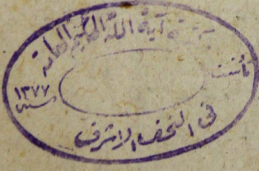 مكتبة آية الله الحكيم العامة
تأسست
سنة ١٣٧٧
في النجف الاشرف